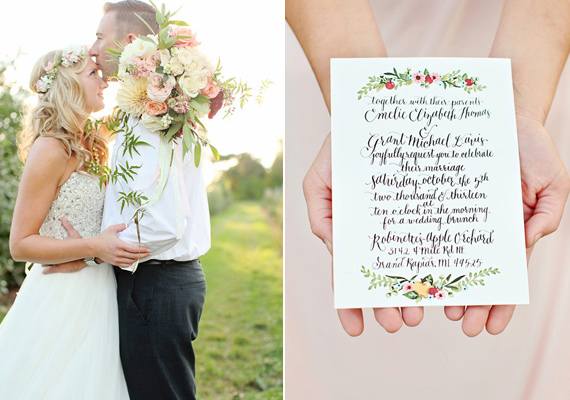 together with their parents
Emelie Elizabeth Thomas
&
Grant Michael Lavis
joyfully request you to celebrate
their marriage
Saturday october the 5th
two thousand & thirteen
at
ten o'clock in the morning
for a wedding brunch
Robinette's Apple Orchard
3142 4 Mile Rd NE
Grand Rapids, MI 49525